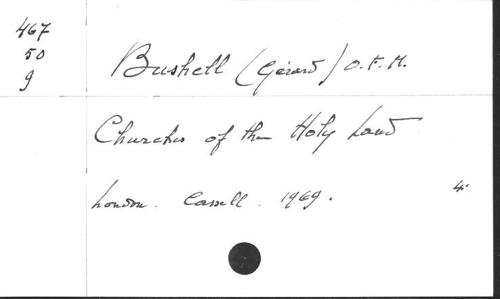 467
50
g
Bushell (Gérard) O.F.M.
Churches of the Holy Land
London. Cassell. 1969.
4°